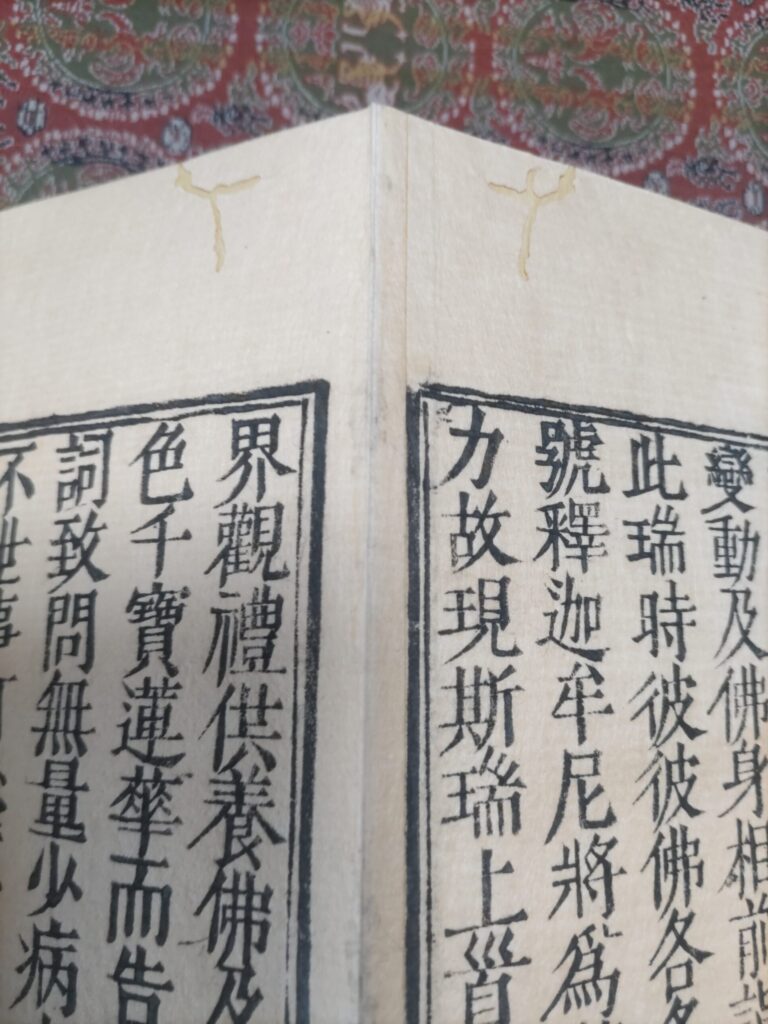 變動及佛身相前詣
此瑞時彼彼佛各
號釋迦牟尼將爲
力故現斯瑞上首
界觀禮供養佛及
色千寶蓮華而告
詞致問無量少病
不世事可